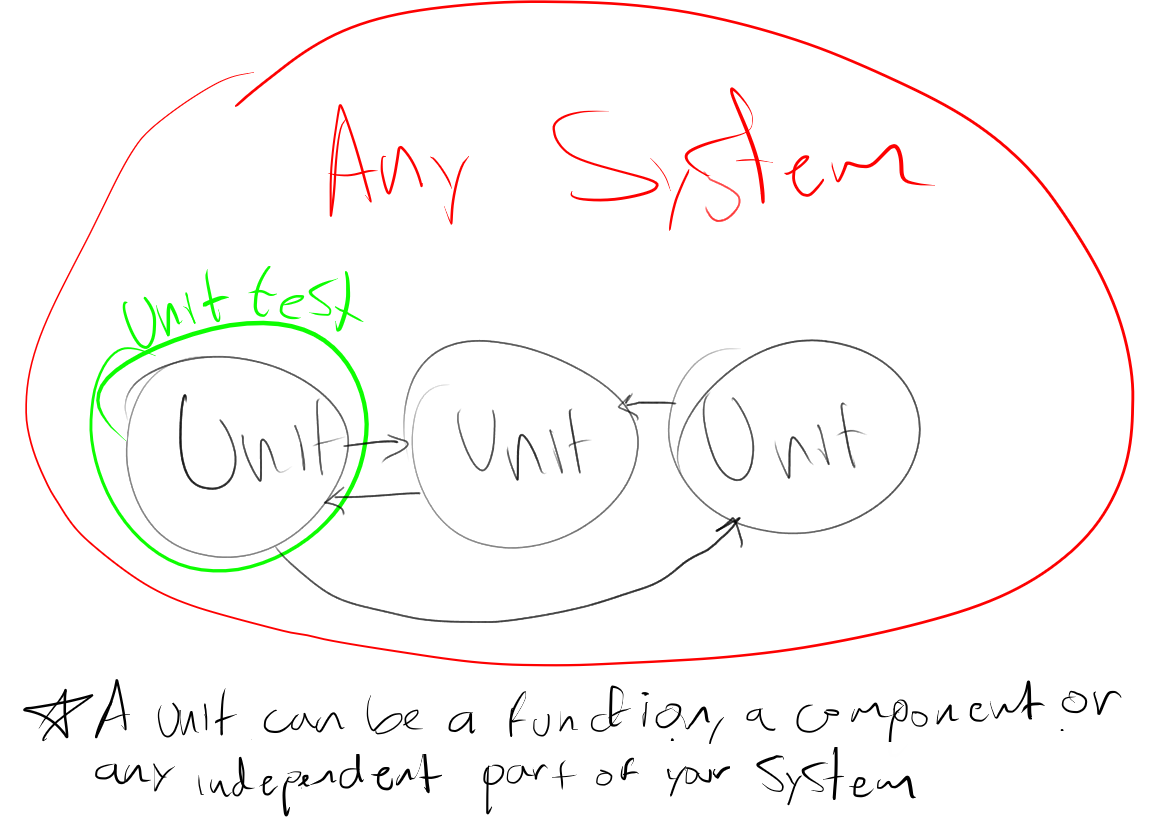 Any System
Unit test
Unit
Unit
Unit
☆ A unit can be a function, a component or
any independent part of your System